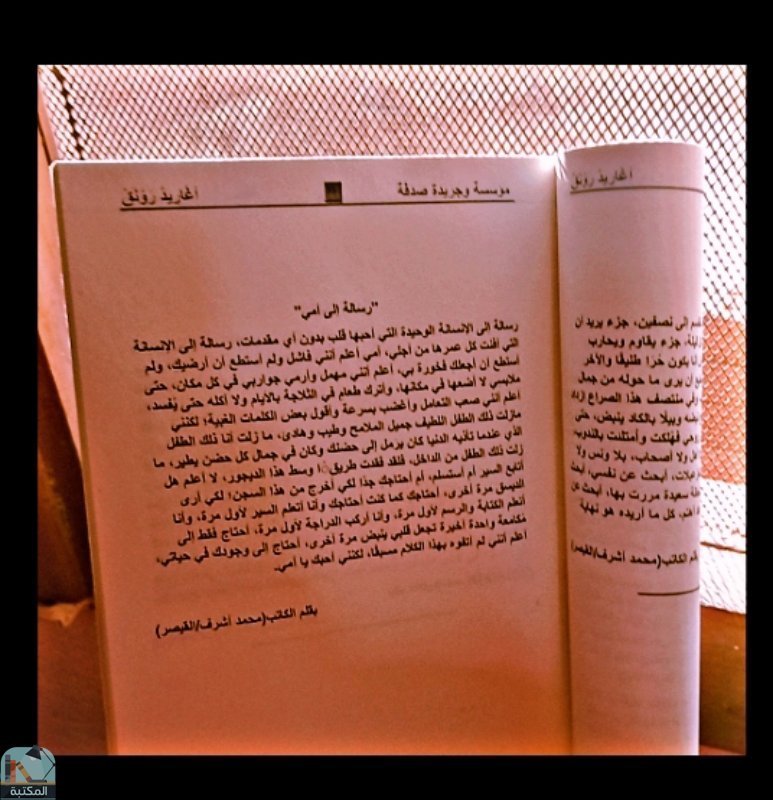 مؤسسة وجريدة صدفة
أغاريدُ رَوْنَقْ
"رسالة إلى أمي"
رسالة إلى الإنسانة الوحيدة التي أحبها قلب بدون أي مقدمات، رسالة إلى الإنسانة
التي أفنت كل عمرها من أجلي، أمي أعلم أنني فاشل ولم أستطع أن أرضيك، ولم
أستطع أن أجعلك فخورة بي، أعلم أنني مهمل وأرمي جواربي في كل مكان، حتى
ملابسي لا أضعها في مكانها، وأترك طعام في الثلاجة بالأيام ولا أكله حتى يُفسد،
أعلم أنني صعب التعامل وأغضب بسرعة وأقول بعض الكلمات الغبية؛ لكنني
مازلت ذلك الطفل اللطيف جميل الملامح وطيب وهادى، ما زلت أنا ذلك الطفل
الذي عندما تأتيه الدنيا كان يرمل إلى حضنك وكان في جمال كل حضن يطير، ما
زلت ذلك الطفل من الداخل، فلقد فقدت وسط هذا الديجور، لا أعلم هل
أتابع السير أم أستسلم، أم أحتاجك جدًا لكي أخرج من هذا السجن؛ لكي أرى
مرة أخرى، أحتاجك كما كنت أحتاجك وأنا أتعلم السير لأول مرة، وأنا
أتعلم الكتابة والرسم لأول مرة، وأنا أركب الدراجة لأول مرة، أحتاج فقط إلى
واحدة أخيرة تجعل قلبي ينبض مرة أخرى، أحتاج إلى وجودك في حياتي،
أعلم أنني لم أتفوه بهذا الكلام مسبقًا، لكنني أحبك يا أمي.
بقلم الكاتب(محمد أشرف/القيصر)
أغاريدُ رَوْنَقْ
إلى نصفين، جزء يريد أن
جزء يقاوم ويحارب
يكون حُرًا طليقًا والآخر
أن يرى ما حوله من جمال
وفي منتصف هذا الصراع
بالكاد ينبض، حتى
وهي فهلكت وأمتلئت بالندوب،
ولا أصحاب، بلا ونس ولا
أبحث عن نفسي، أبحث
سعيدة مررت بها، أبحث عن
كل ما أريده هو نهاية
بقلم الكاتب(محمد أشرف/القيصر)
المكتبة